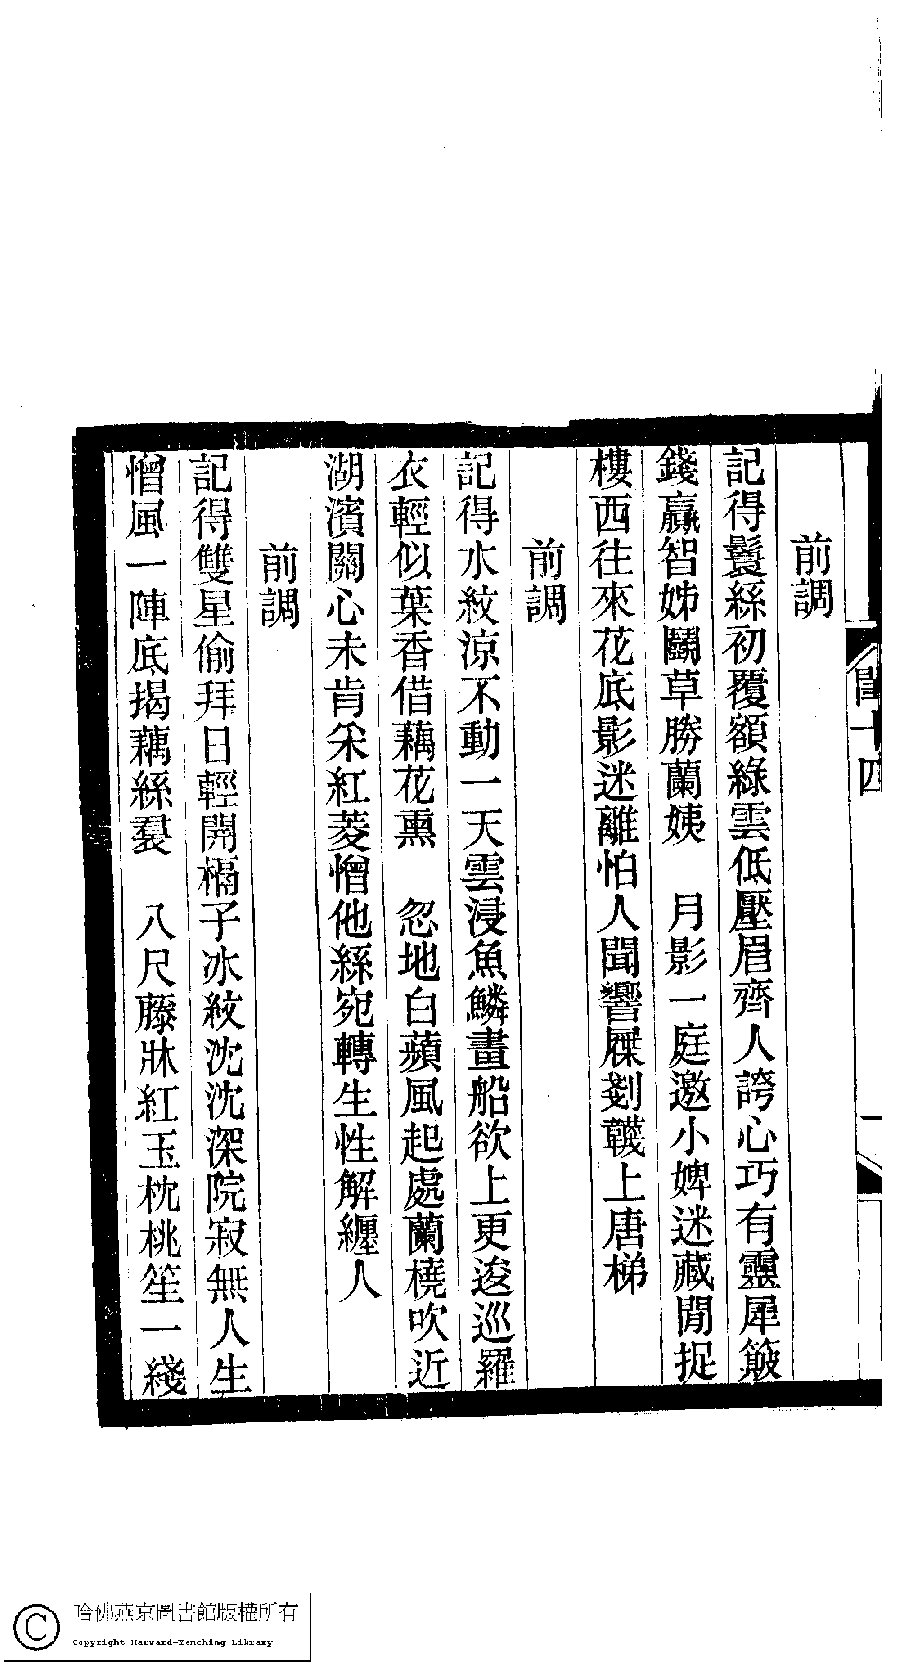 前調
記得鬟絲初覆額綠雲低壓眉齊人誇心巧有靈犀簸
錢贏智姊鬭草勝蘭姨　月影一庭邀小婢迷藏閒捉
樓西往來花底影迷離怕人聞響屧剗韈上唐梯
前調
記得水紋涼不動一天雲浸魚鱗畫船欲上更逡巡羅
衣輕似葉香借藕花熏　忽地白蘋風起處蘭橈吹近
湖濱關心未肯采紅菱憎他絲宛轉生性解纏人
前調
記得雙星偷拜日輕開槅子冰紋沈沈深院寂無人生
憎風一陣底揭藕絲裠　八尺藤牀紅玉枕桃笙一綫
十四
哈佛燕京圖書館版權所有
Copyright Harvard-Yenching Library